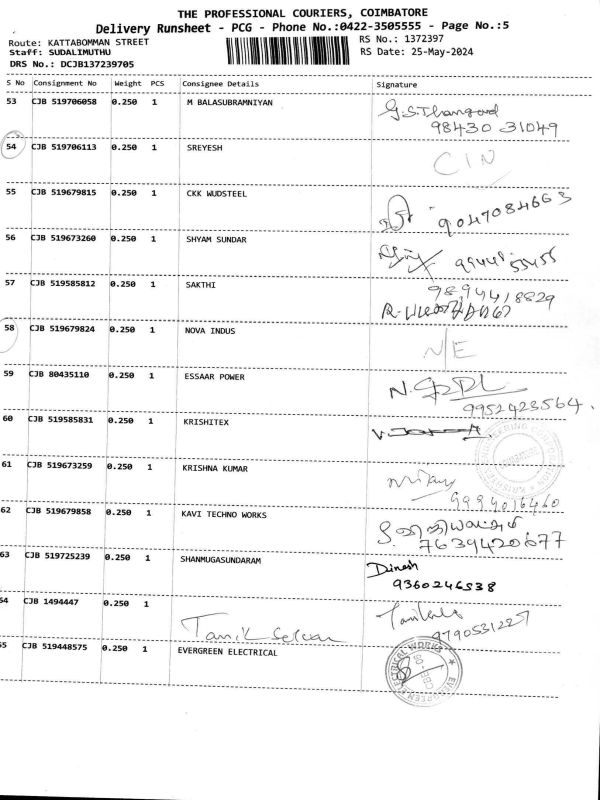 THE PROFESSIONAL COURIERS, COIMBATORE
Delivery Runsheet - PCG - Phone No.:0422-3505555 - Page No.:5
Route: KATTABOMMAN STREET
RS No.: 1372397
Staff: SUDALIMUTHU
RS Date: 25-May-2024
DRS No.: DCJB137239705
S No Consignment No Weight PCS Consignee Details Signature
53 CJB 519706058 0.250 1 M BALASUBRAMNIYAN
98430 31049
54 CJB 519706113 0.250 1 SREYESH
CIN
55 CJB 519679815 0.250 1 CKK WUDSTEEL
9047084663
56 CJB 519673260 0.250 1 SHYAM SUNDAR
57 CJB 519585812 0.250 1 SAKTHI
9894418829
58 CJB 519679824 0.250 1 NOVA INDUS
N/E
59 CJB 80435110 0.250 1 ESSAAR POWER
9952423564.
60 CJB 519585831 0.250 1 KRISHITEX
61 CJB 519673259 0.250 1 KRISHNA KUMAR
62 CJB 519679858 0.250 1 KAVI TECHNO WORKS
7639420677
63 CJB 519725239 0.250 1 SHANMUGASUNDARAM
Dinesh
9360246538
64 CJB 1494447 0.250 1
Tamil Selvan
9790531227
65 CJB 519448575 0.250 1 EVERGREEN ELECTRICAL
EVERGREEN ELECTRICAL WORKS
CBE-